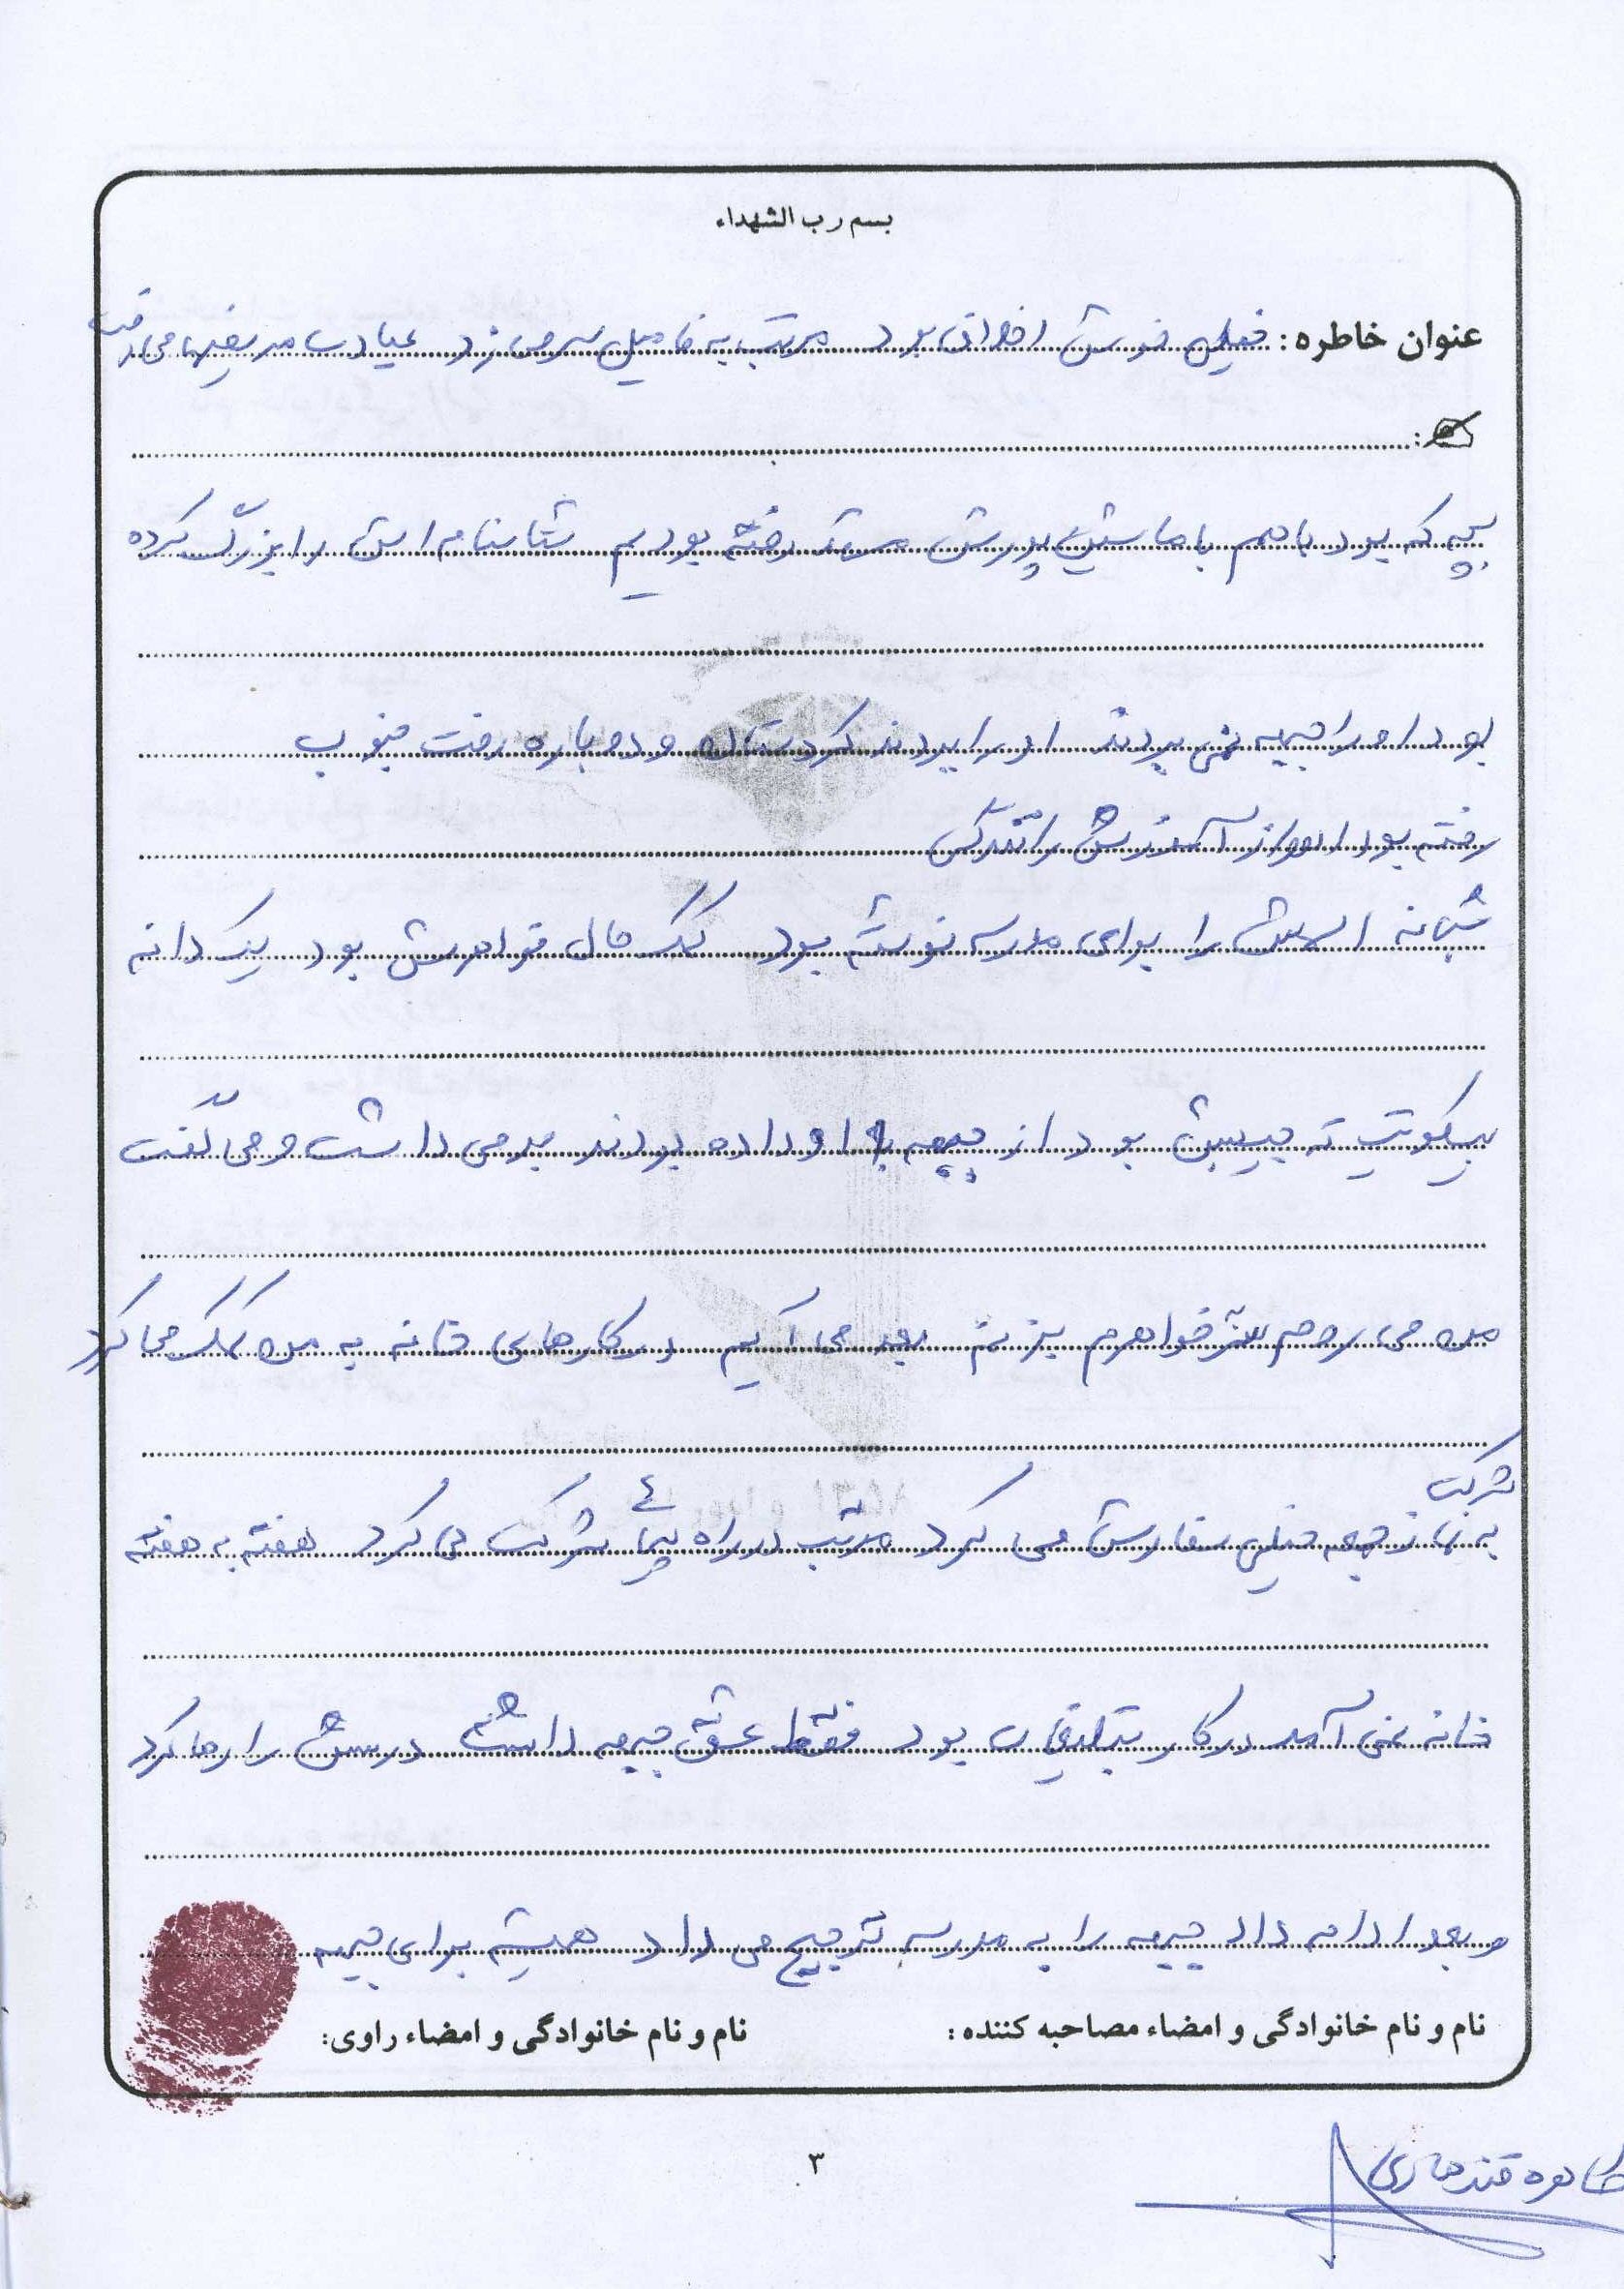 بسم رب الشهداء
عنوان خاطره: خیلی خوش اخلاق بود مرتب به فامیل سر می زد عیادت مریضها می رفت
بچه که بود با هم با ماشین پدرش رفته بودیم شناسنامه اش را بزرگ کرده
بود او را جبهه نمی بردند او را بردند کردستان و دوباره رفت جنوب
رفته بود اهواز آموزش رانندگی
شبانه اسمش را برای مدرسه نوشته بود کمک حال خواهرش بود یک دانه
بیسکویت ته جیبش بود از جبهه با او داده بودند برمی داشت و می گفت
من می روم سر خواهرم بزنم بعد می آیم در کارهای خانه به من کمک می کرد
شرکت
به نماز جمعه خیلی سفارش می کرد مرتب در راه پیمائی شرکت می کرد هفته به هفته
خانه نمی آمد در کار تبلیغات بود فقط عشق جبهه داشت درسش را رها کرد
و بعد ادامه داد جبهه را به مدرسه ترجیح می داد همیشه برای جبهه
نام و نام خانوادگی و امضاء مصاحبه کننده: نام و نام خانوادگی و امضاء راوی:
۳
طاهره قندهاری